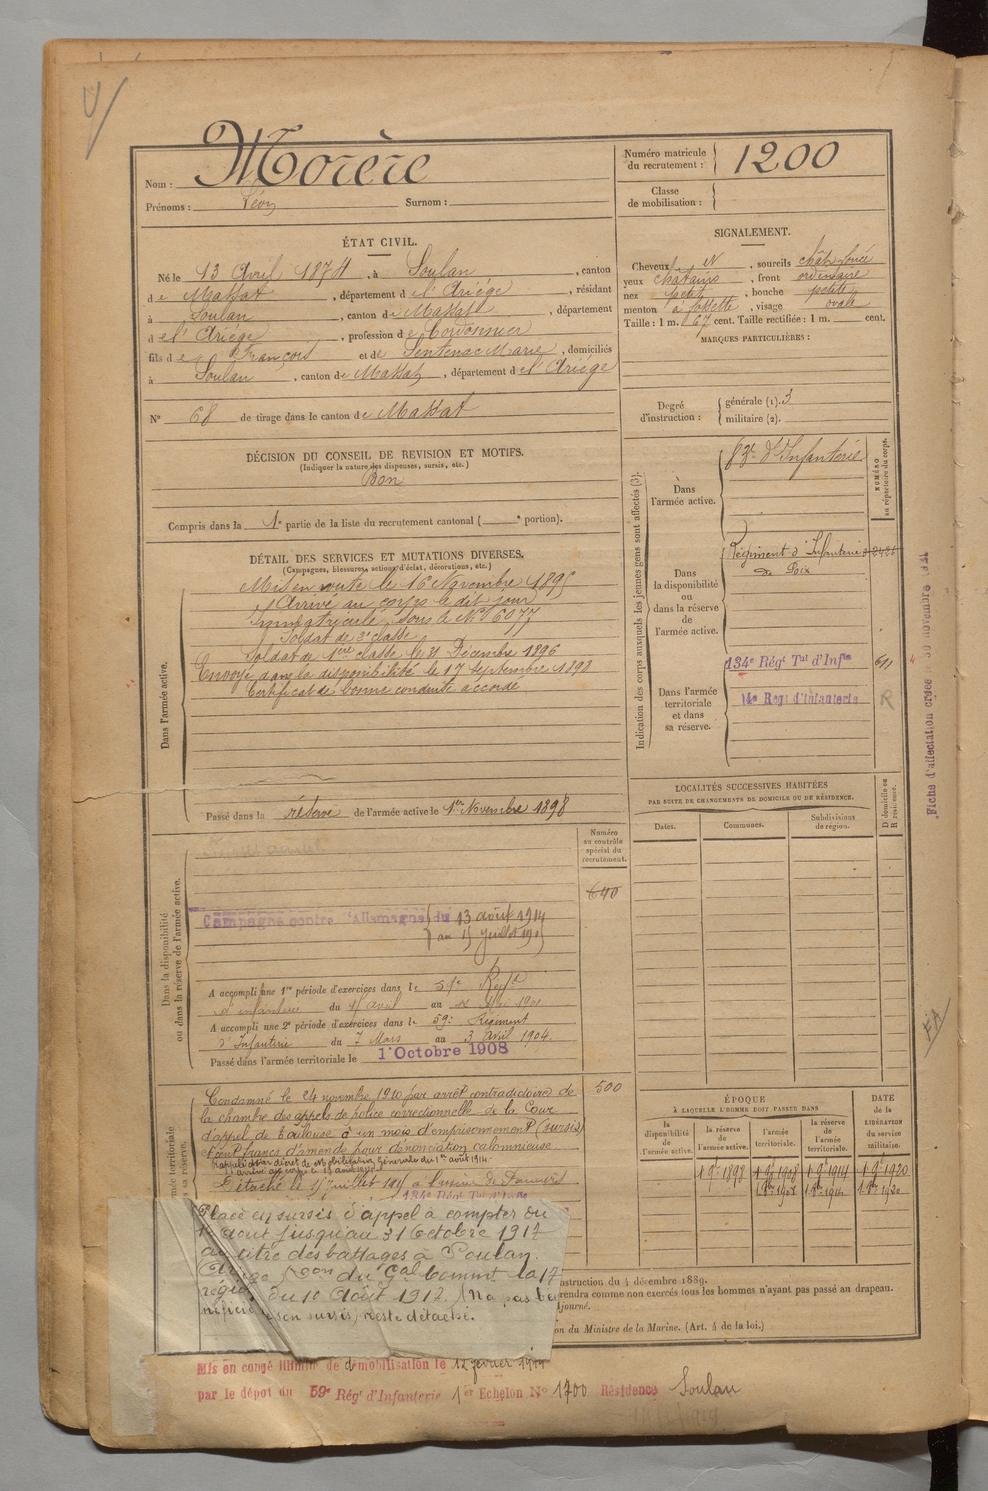 Morère
Nom :
Prénoms : Léon Surnom :
Numéro matricule
du recrutement : 1200
Classe
de mobilisation :
ÉTAT CIVIL.
Né le 13 Avril 1874, à Soulan, canton
de Massat, département de l'Ariège, résidant
à Soulan, canton de Massat, département
de l'Ariège, profession de Cordonnier
fils de François et de Sentenac Marie, domiciliés
à Soulan, canton de Massat, département de l'Ariège
N° 68 de tirage dans le canton de Massat
SIGNALEMENT.
Cheveux et, sourcils chât. foncé
yeux châtains, front ordinaire
nez petit, bouche petite
menton à fossette, visage ovale
Taille : 1 m. 67 cent. Taille rectifiée : 1 m. cent.
MARQUES PARTICULIÈRES :
Degré
d'instruction :
générale (1). 3
militaire (2).
DÉCISION DU CONSEIL DE REVISION ET MOTIFS.
(Indiquer la nature des dispenses, sursis, etc.)
Bon
Compris dans la 1e partie de la liste du recrutement cantonal ( e portion).
DÉTAIL DES SERVICES ET MUTATIONS DIVERSES.
(Campagnes, blessures, actions d'éclat, décorations, etc.)
Dans l'armée active.
Mis en route le 16 Novembre 1895
Arrivé au corps le dit jour
Immatriculé sous le N° 6077
Soldat de 2e classe
Soldat de 1ère classe le 21 Décembre 1896
Envoyé dans la disponibilité le 17 Septembre 1898
Certificat de bonne conduite accordé
Passé dans la réserve de l'armée active le 1er Novembre 1898
Indication des corps auxquels les jeunes gens sont affectés (3).
NUMÉRO
au répertoire du corps.
Dans
l'armée active.
83e d'Infanterie
Dans
la disponibilité
ou
dans la réserve
de
l'armée active.
Régiment d'Infanterie
de Foix
Dans l'armée
territoriale
et dans
sa réserve.
134e Régt Tal d'Infie 611
14e Régt d'Infanterie R
Fiche d'affectation créée le 30 novembre 1921
LOCALITÉS SUCCESSIVES HABITÉES
PAR SUITE DE CHANGEMENTS DE DOMICILE OU DE RÉSIDENCE.
Dates.
Communes.
Subdivisions
de région.
D domicile ou
R résidence.
Dans la disponibilité
ou dans la réserve de l'armée active.
Numéro
au contrôle
spécial du
recrutement.
640
Campagne contre l'Allemagne du 13 août 1914
au 15 juillet 1915
A accompli une 1re période d'exercices dans le 59e Régt
d'infanterie du avril au 1901
A accompli une 2e période d'exercices dans le 59e Régiment
d'Infanterie du 7 Mars au 3 Avril 1904.
Passé dans l'armée territoriale le 1 Octobre 1908
500
Condamné le 24 novembre 1910 par arrêt contradictoire de
la chambre des appels de police correctionnelle de la Cour
d'appel de Toulouse à un mois d'emprisonnement (sursis)
et cent francs d'amende pour dénonciation calomnieuse
Rappelé par décret de Mobilisation Générale du 1er août 1914.
Arrivé au corps le 13 août 1914
Détaché le 15 juillet 1915 à l'usine de Pamiers
134e Régt Tal d'Infie
Placé en sursis d'appel à compter du
1er août jusqu'au 31 octobre 1917
au titre des battages à Soulan.
Ariège Don du Gal Commt la 17
région du 10 Août 1917. (N'a pas bé-
néficié de son sursis, reste détaché.
ÉPOQUE
À LAQUELLE L'HOMME DOIT PASSER DANS
DATE
de la
LIBÉRATION
du service
militaire.
la
disponibilité
de
l'armée active.
la réserve
de
l'armée active.
l'armée
territoriale.
la réserve
de
l'armée
territoriale.
1 9bre 1898 1 9bre 1908 1 9bre 1914 1 9bre 1920
1 8bre 1908 1 8bre 1914 1 8bre 1920
nstruction du 4 décembre 1889.
rendra comme non exercés tous les hommes n'ayant pas passé au drapeau.
djourné.
on du Ministre de la Marine. (Art. 4 de la loi.)
Mis en congé illimité de démobilisation le 12 février 1919
par le dépôt du 59e Régt d'Infanterie 1er Echelon N° 1700 Résidence Soulan